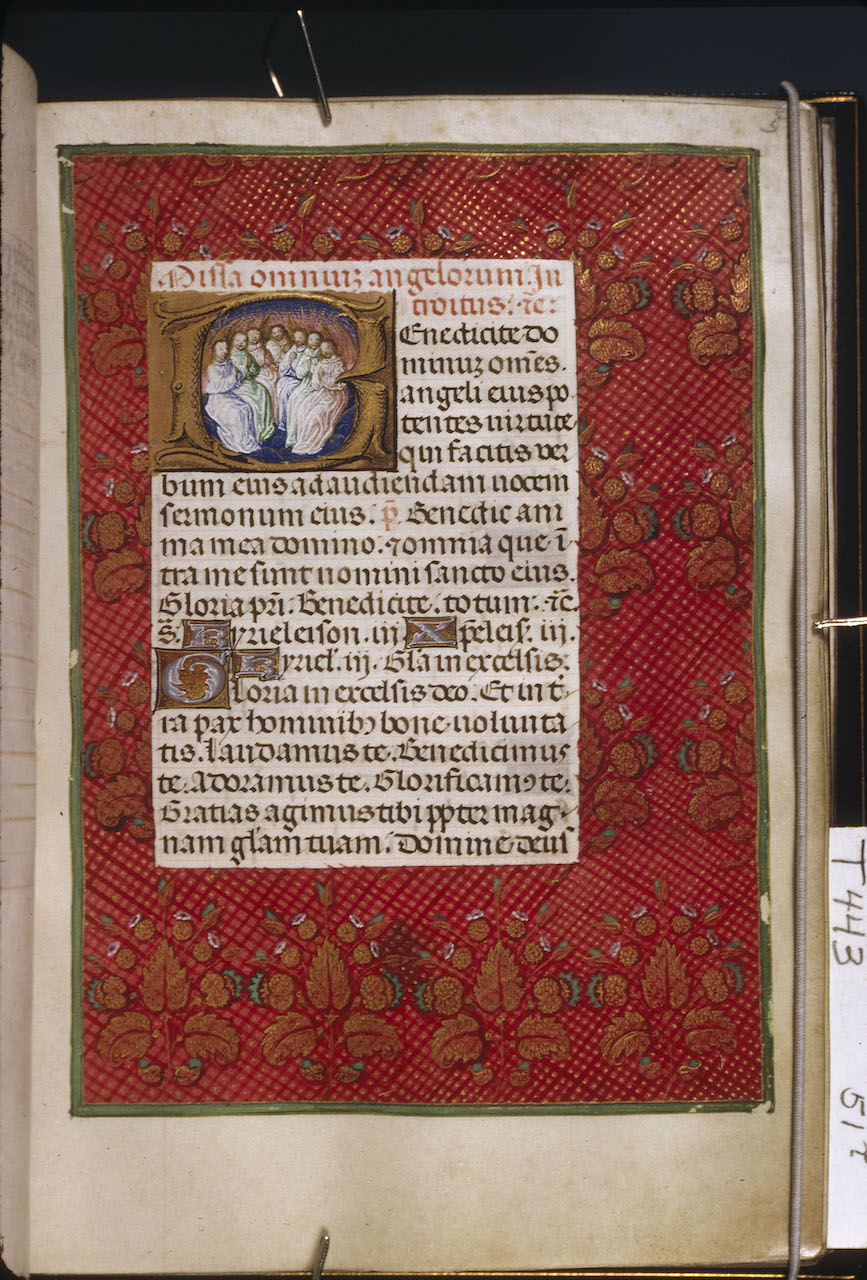 Missa omniuz angelorum. In
troitus. ⁊c:
BEnedicite do
minuz om̄es.
angeli eius po
tentes uirtute
qui facitis ver
bum eius ad audiendam uocem
sermonum eius. p̄. Benedic ani
ma mea domino. ⁊ omnia que ī
tra me sunt nomini sancto eius.
Gloria pr̄i. Benedicite. totum. ⁊c.
Kyrieleison. iij. Xp̄eleis. iij.
Kyriel. iij. Gl̄a in excelsis.
Gloria in excelsis deo. Et in t̄
ra pax hominibꝫ bone uolunta
tis. Laudamus te. Benedicimus
te. Adoramus te. Glorificamꝰ te.
Gratias agimus tibi ꝓpter mag
nam gl̄am tuam. Domine deus
T443
517